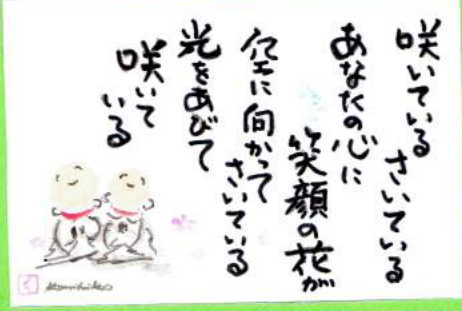 咲いている さいている
あなたの心に
笑顔の花が
空に向かって
さいている
光をあびて
咲いて
いる